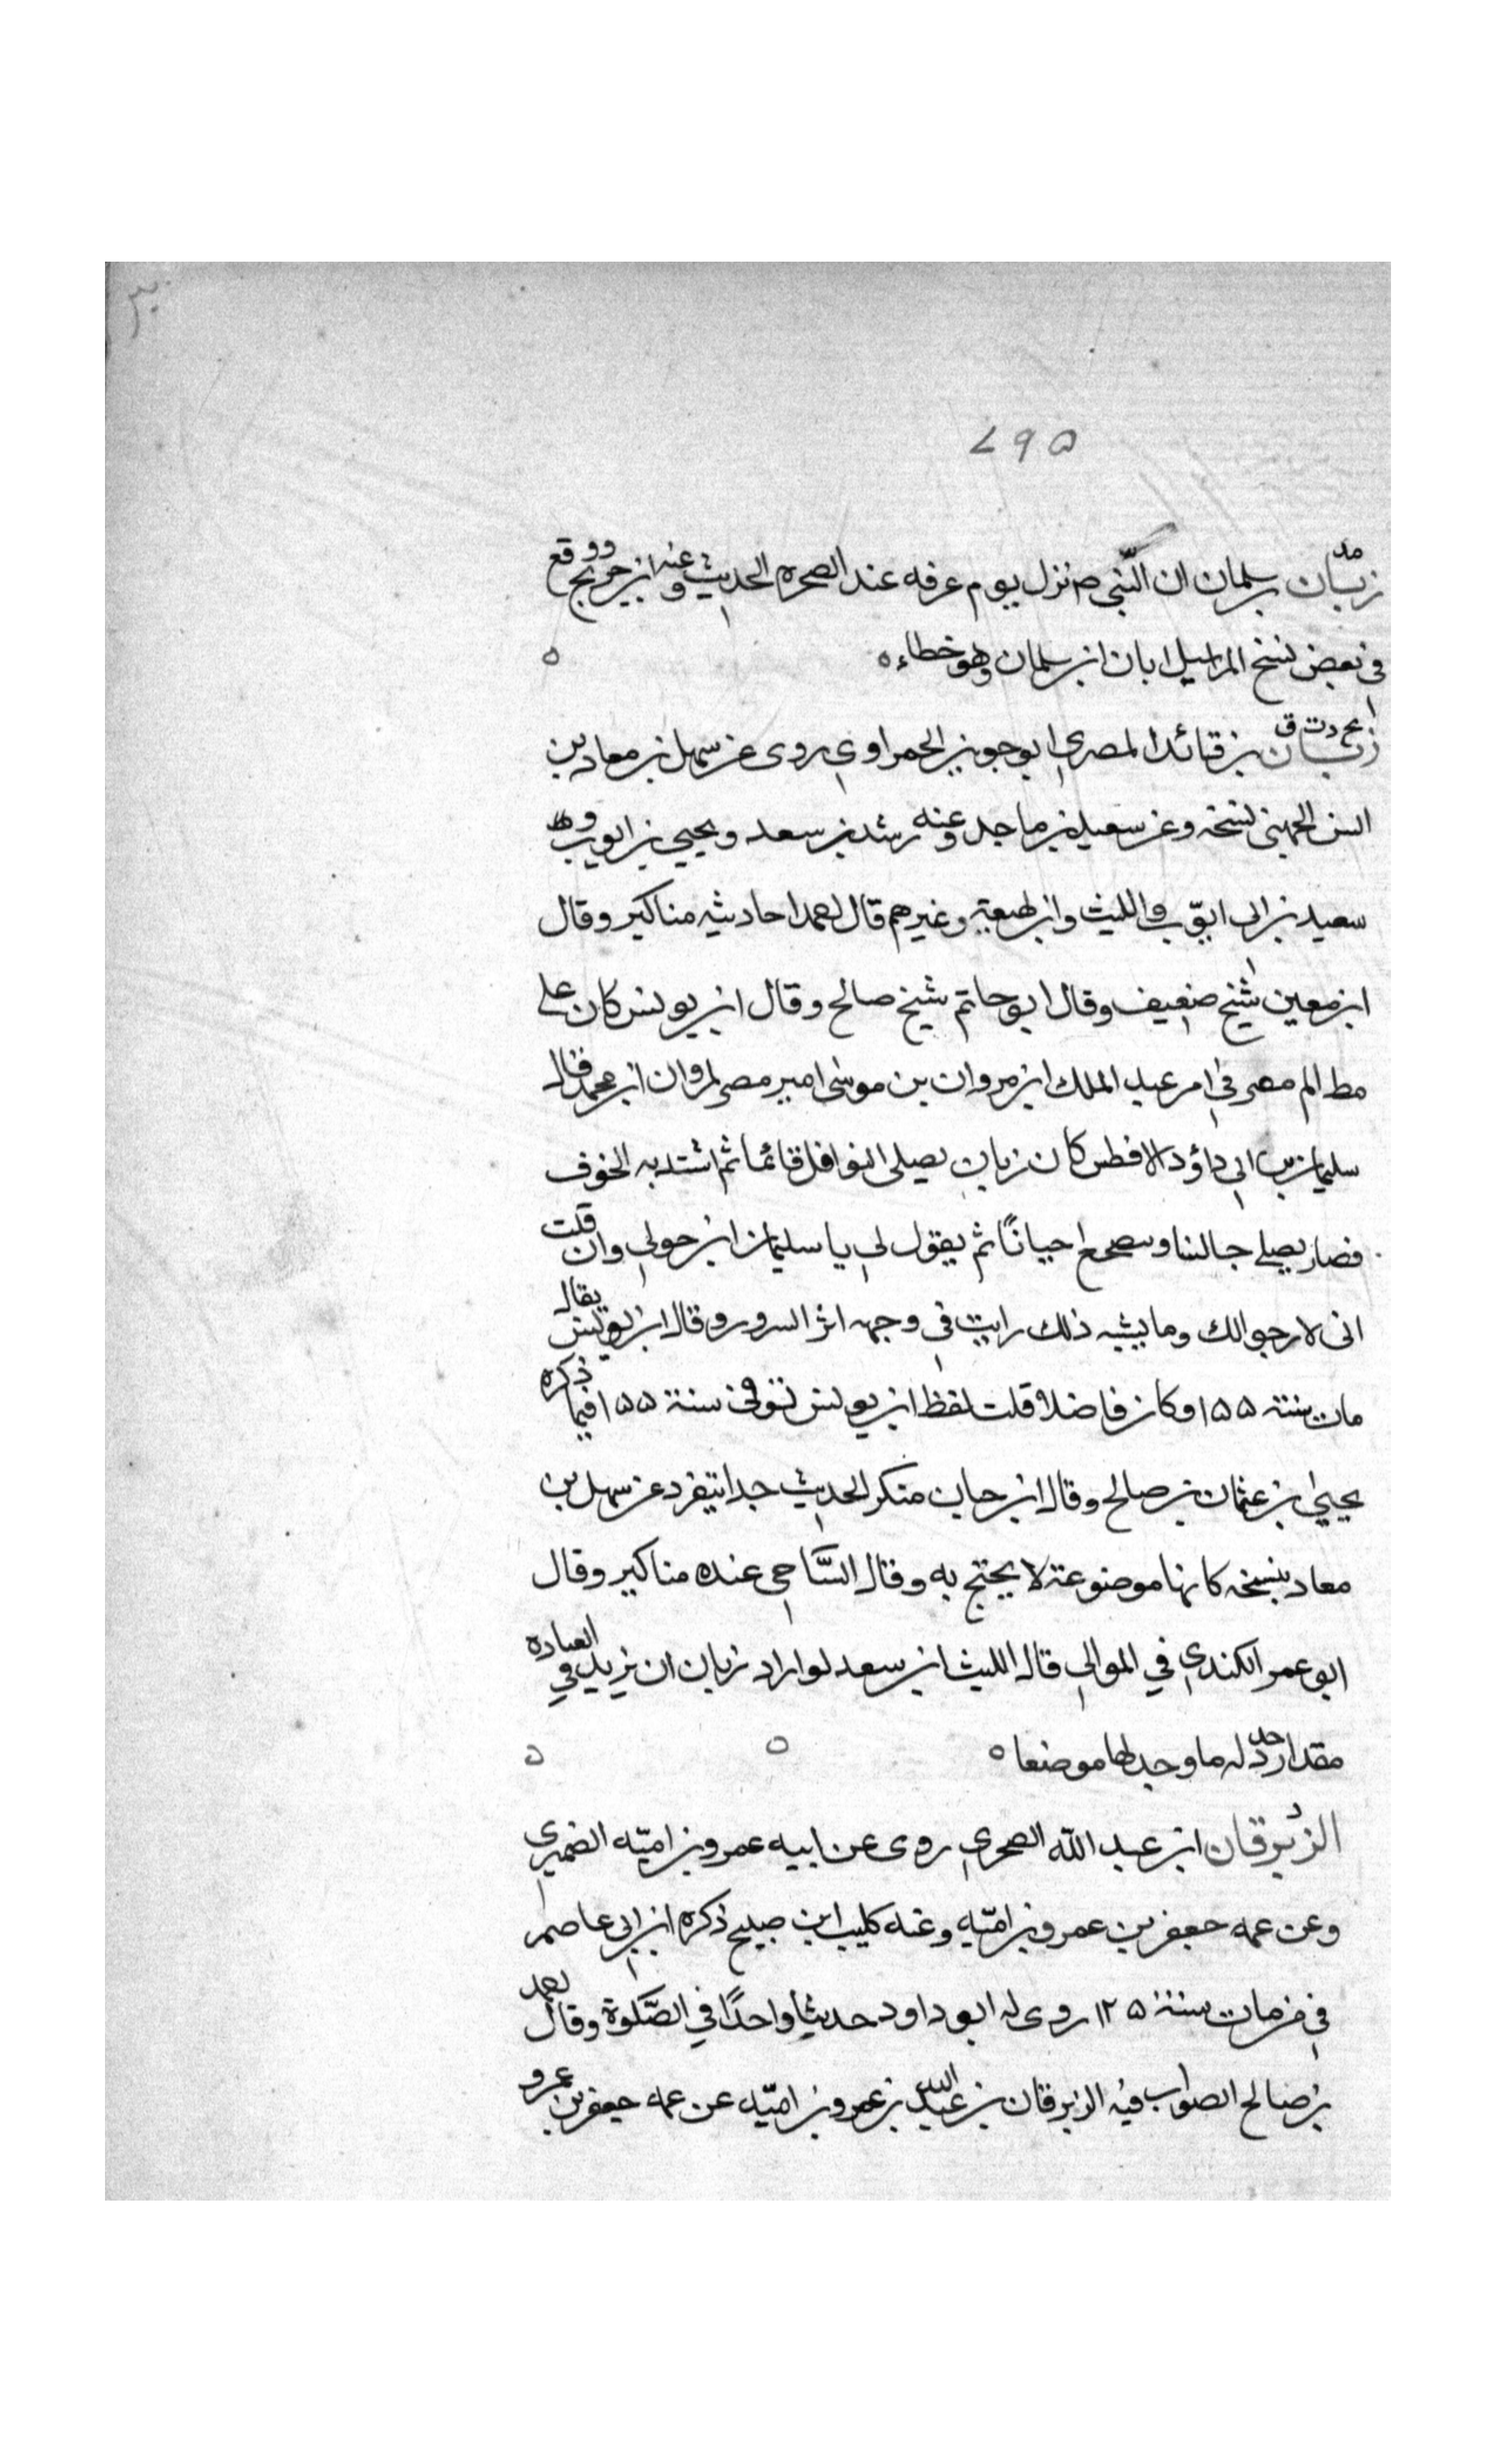 ۷۹۵
مد
زبّان بن سلمان ان النّبي صم نزل يوم عرفه عند الصحره الحديث وعنه ابن جريج ووقع
في بعض نسخ المراسيل ابان ابن سلمان وهو خطاء ه ه
بخ د ت ق
زبان بن قائد المصري ابو جوين الحمراوي روى عن سهل بن معاد بن
انس الجهني نسخه وعن سعيد بن ماجد وعنه رشد بن سعد ويحيي بن ايوب و
سعيد بن ابي ايوّب والليث وابن لهيعة وغيرهم قال احمد احاديثه مناكير وقال
ابن معين شيخ ضعيف وقال ابو حاتم شيخ صالح وقال ابن يونس كان علي
مظالم مصر في امر عبد الملك ابن مروان بن موسى امير مصر لمروان ابن محمد قال
سليمان بن ابي داؤد الافطس كان زبان يصلى النوافل قائما ثم اشتد به الخوف
فصار يصلي جالسا ويصحع احيانًا ثم يقول لي يا سليمان ابن حولي وان قلت
انى لارجو الك وما يشبه ذلك رايت في وجهه اثر السرور وقال ابن يونس يقال
مات سنة ۱۵۵ وكان فاضلا قلت لفظ ابن يونس توفي سنة ۱۵۵ فيما ذكره
يحيي بن عثمان بن صالح وقال ابن حبان منكر الحديث جدا يتفرد عن سهل بن
معاد بنسخه كانها موضوعة لا يحتج به وقال السّاحى عنده مناكير وقال
ابو عمر الكندي في الموالي قال الليث ابن سعد لو اراد زبان ان يزيد في العباده
مقدار خردله ما وجد لها موضعا ه ه ه
د
الزبرقان ابن عبد الله الصحري روى عن ابيه عمرو بن اميّه الضمري
وعن عمه جعفر بن عمرو بن اميّه وعنه كليب ابن صبيح ذكره ابن ابي عاصم
في من مات سنة ۱۲۵ روى له ابو داود حديثا واحدًا في الصّلوة وقال احمد
بن صالح الصواب فيه الزبرقان بن عبد الله بن عمرو بن اميّه عن عمه جعفر بن عمرو